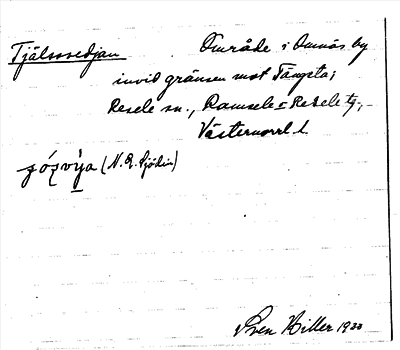 Tjälsvedjan
Område i Omnäs by
invid gränsen mot Tängsta;
Resele sn., Ramsele o Resele tg.,
Västernorrl. l.
(N. R. Sjödin)
Sven Hiller 1933